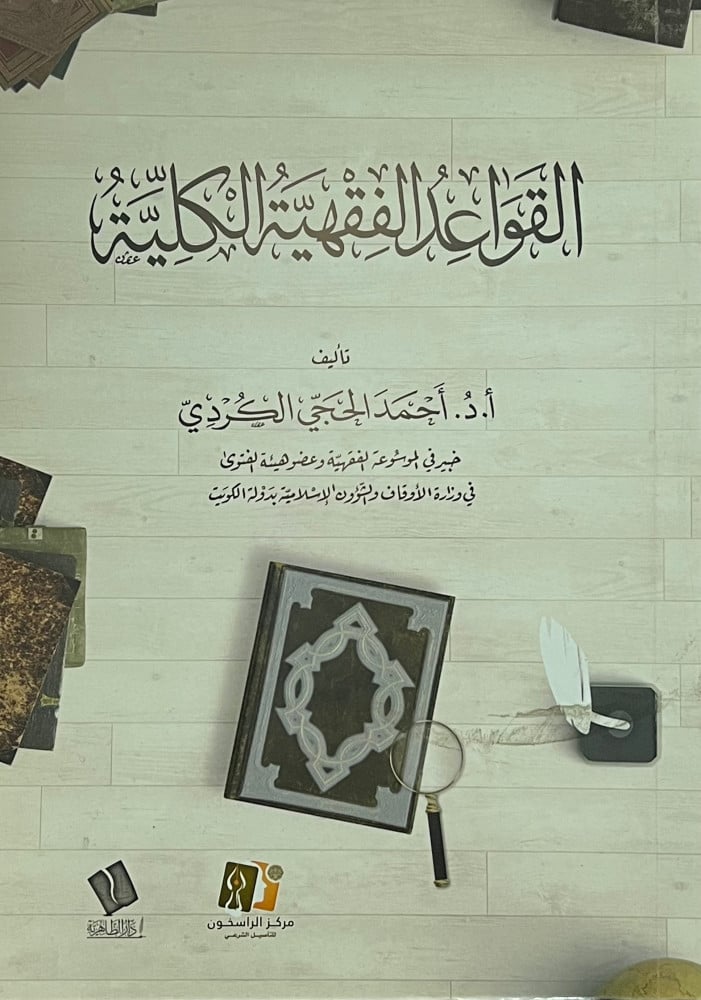 القَوَاعِدُ الفِقْهِيَّةُ الكُلِّيَّةُ
تأليف
أ.دُ. أَحْمَدَ الحَجِّي الكُرْدِيّ
خبير في الموسُوعة الفقهيّة وعضو هيئة الفتوى
في وزارة الأوقاف والشؤون الإسلاميّة بدَولة الكويت
مركز الراسخون
للتأصيل الشرعي
دار الظاهرية